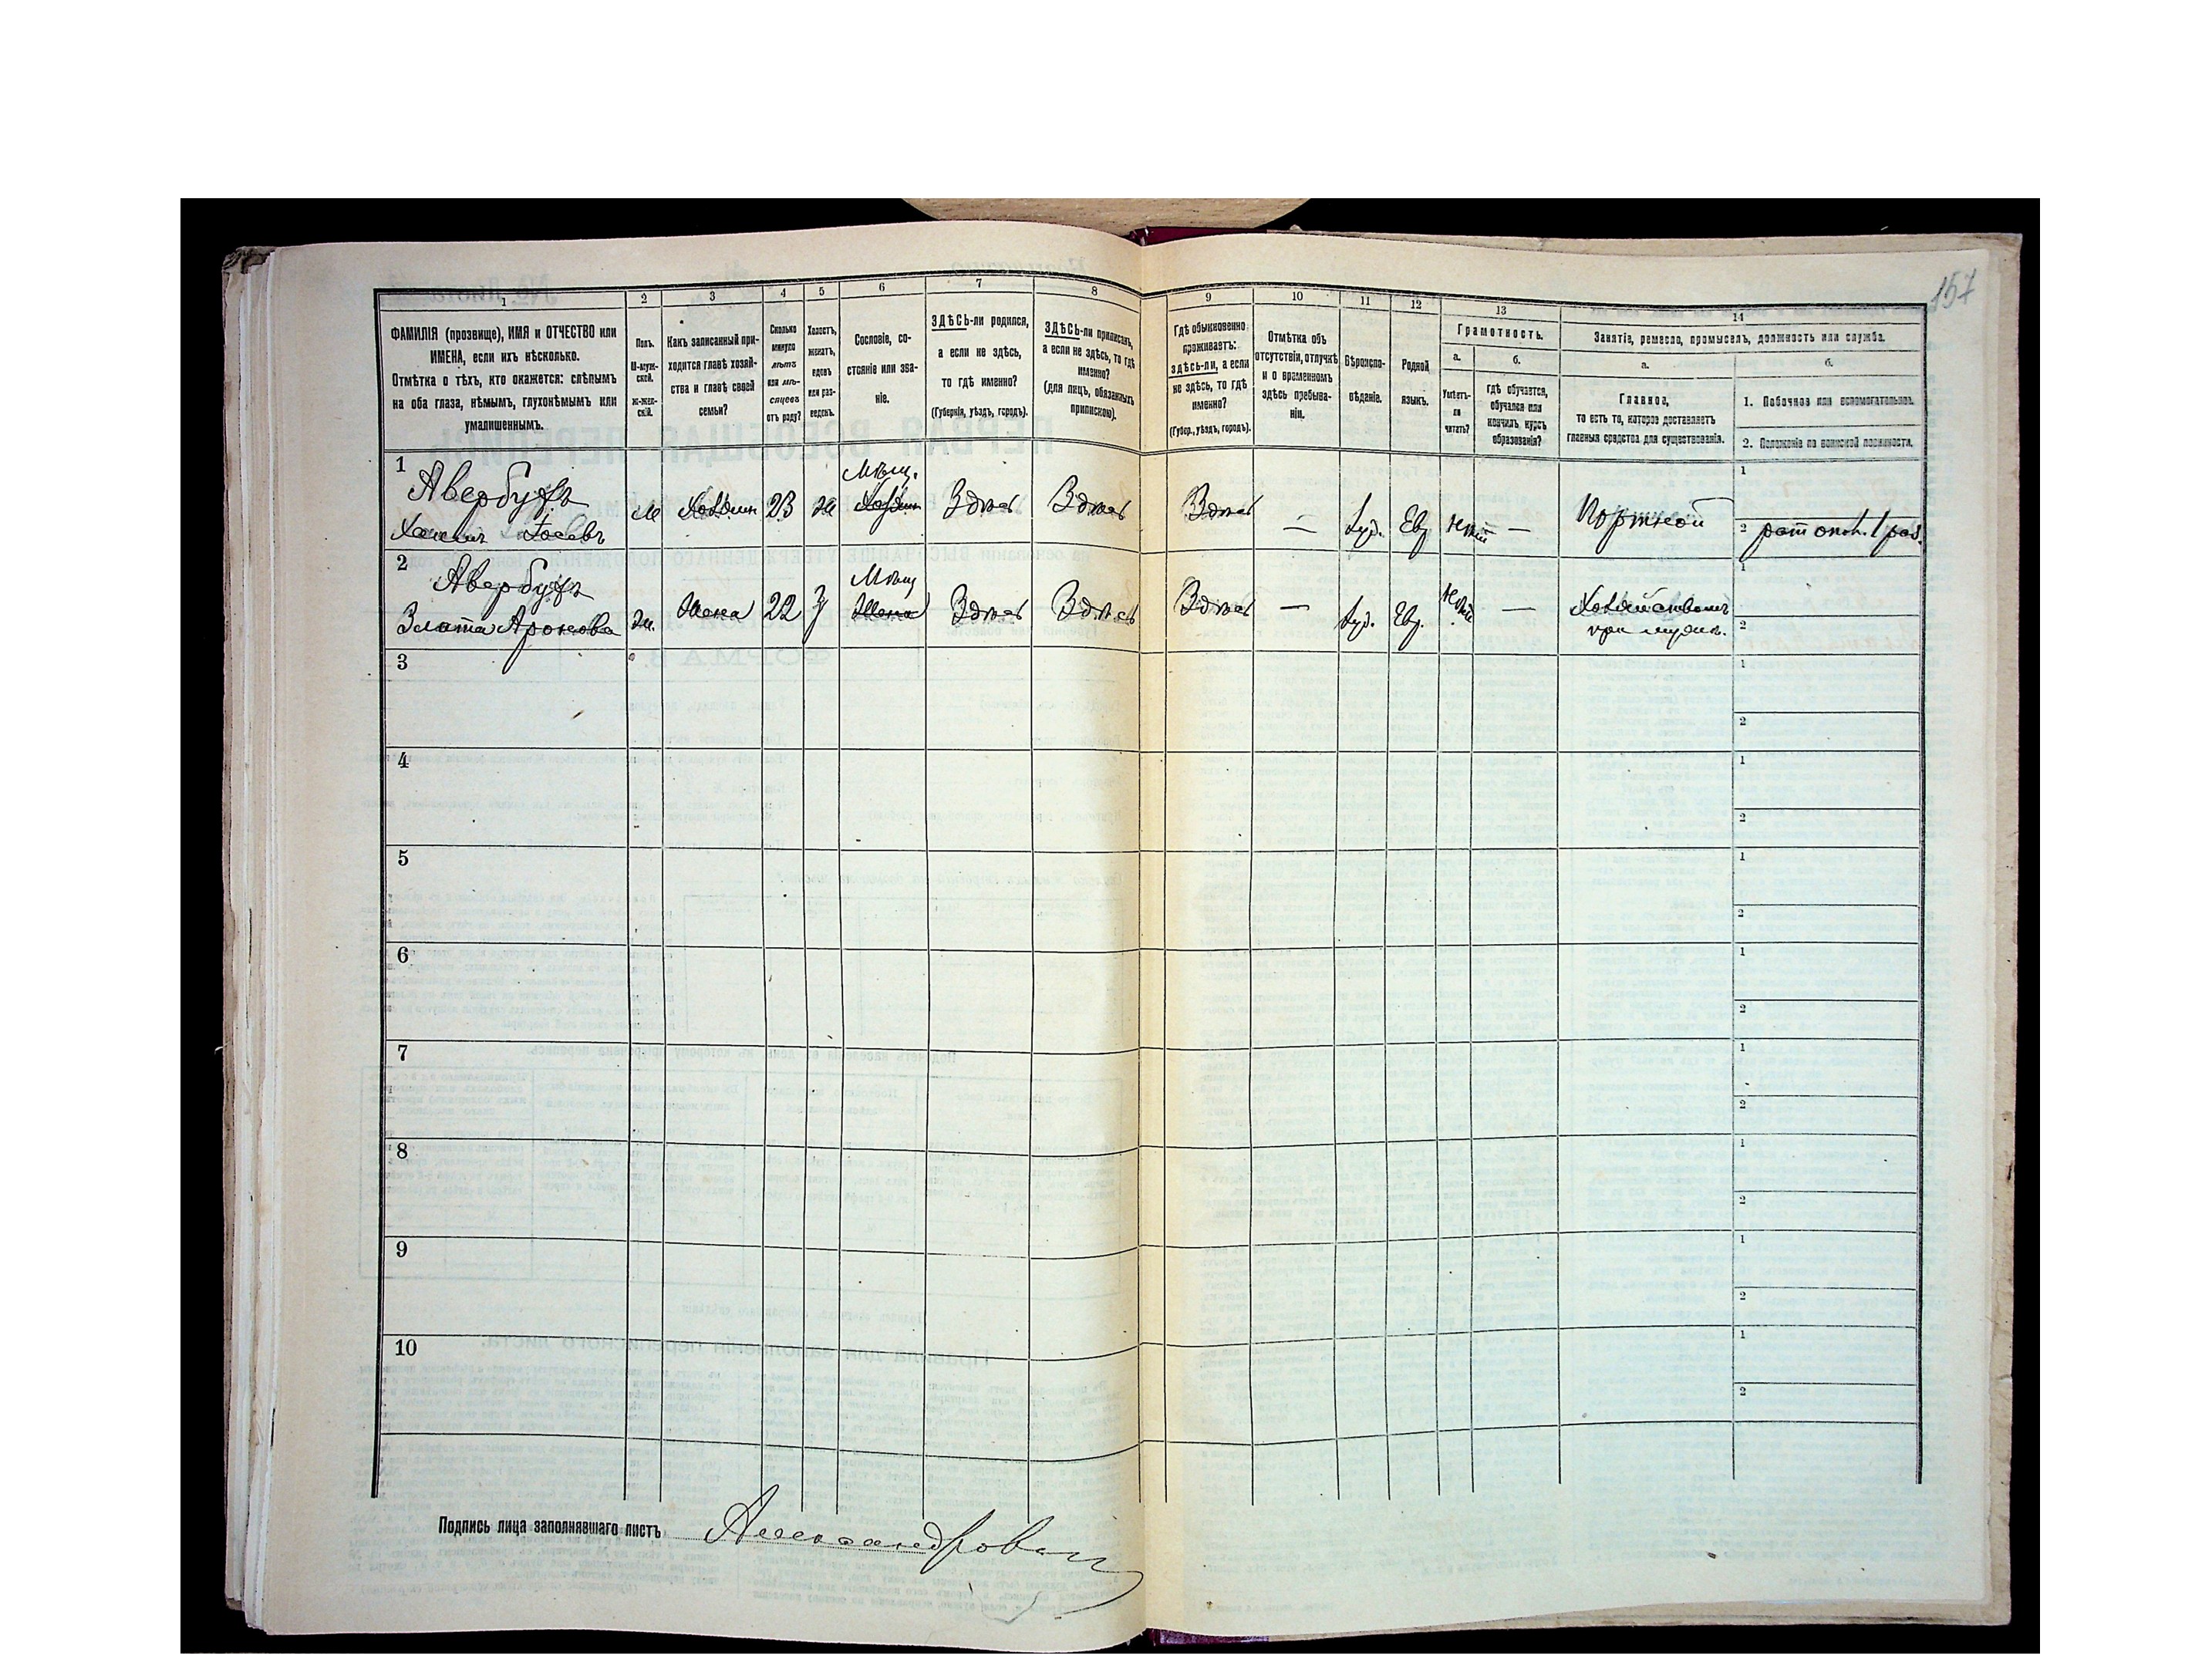 157
1 2 3 4 5 6 7 8 9 10 11 12 13 14
ФАМИЛІЯ (прозвище), ИМЯ и ОТЧЕСТВО или
ИМЕНА, если ихъ нѣсколько.
Отмѣтка о тѣхъ, кто окажется: слѣпымъ
на оба глаза, нѣмымъ, глухонѣмымъ или
умалишеннымъ.
Полъ.
М-муж-
ской.
ж-жен-
скій.
Какъ записанный при-
ходится главѣ хозяй-
ства и главѣ своей
семьи?
Сколько
минуло
лѣтъ
или мѣ-
сяцевъ
отъ роду?
Холостъ,
женатъ,
вдовъ
или раз-
веденъ.
Сословіе, со-
стояніе или зва-
ніе.
ЗДѢСЬ-ли родился,
а если не здѣсь,
то гдѣ именно?
(Губернія, уѣздъ, городъ).
ЗДѢСЬ-ли приписанъ,
а если не здѣсь, то гдѣ
именно?
(для лицъ, обязанныхъ
припискою).
Гдѣ обыкновенно
проживаетъ:
здѣсь-ли, а если
не здѣсь, то гдѣ
именно?
(Губер., уѣздъ, городъ).
Отмѣтка объ
отсутствіи, отлучкѣ
и о временномъ
здѣсь пребыва-
ніи.
Вѣроиспо-
вѣданіе.
Родной
языкъ.
Грамотность.
а.
Умѣетъ-
ли
читать?
б.
гдѣ обучается,
обучался или
кончилъ курсъ
образованія?
Занятіе, ремесло, промыселъ, должность или служба.
а.
Главное,
то есть то, которое доставляетъ
главныя средства для существованія.
б.
1. Побочное или вспомогательное.
2. Положеніе по воинской повинности.
1
Авербухъ
м Хозяин 23 ж Мѣщ. Здѣсь Здѣсь Здѣсь — Іуд. Евр нѣт — Портной
1
2 рат опол. 1 раз.
2
Авербухъ
Злата Аронова ж. Жена 22 з Мѣщ Жена Здѣсь Здѣсь Здѣсь — Іуд. Евр. нѣт —
Хозяйством
при муже.
1
2
3
1
2
4
1
2
5
1
2
6
1
2
7
1
2
8
1
2
9
1
2
10
1
2
Подпись лица заполнявшаго листъ